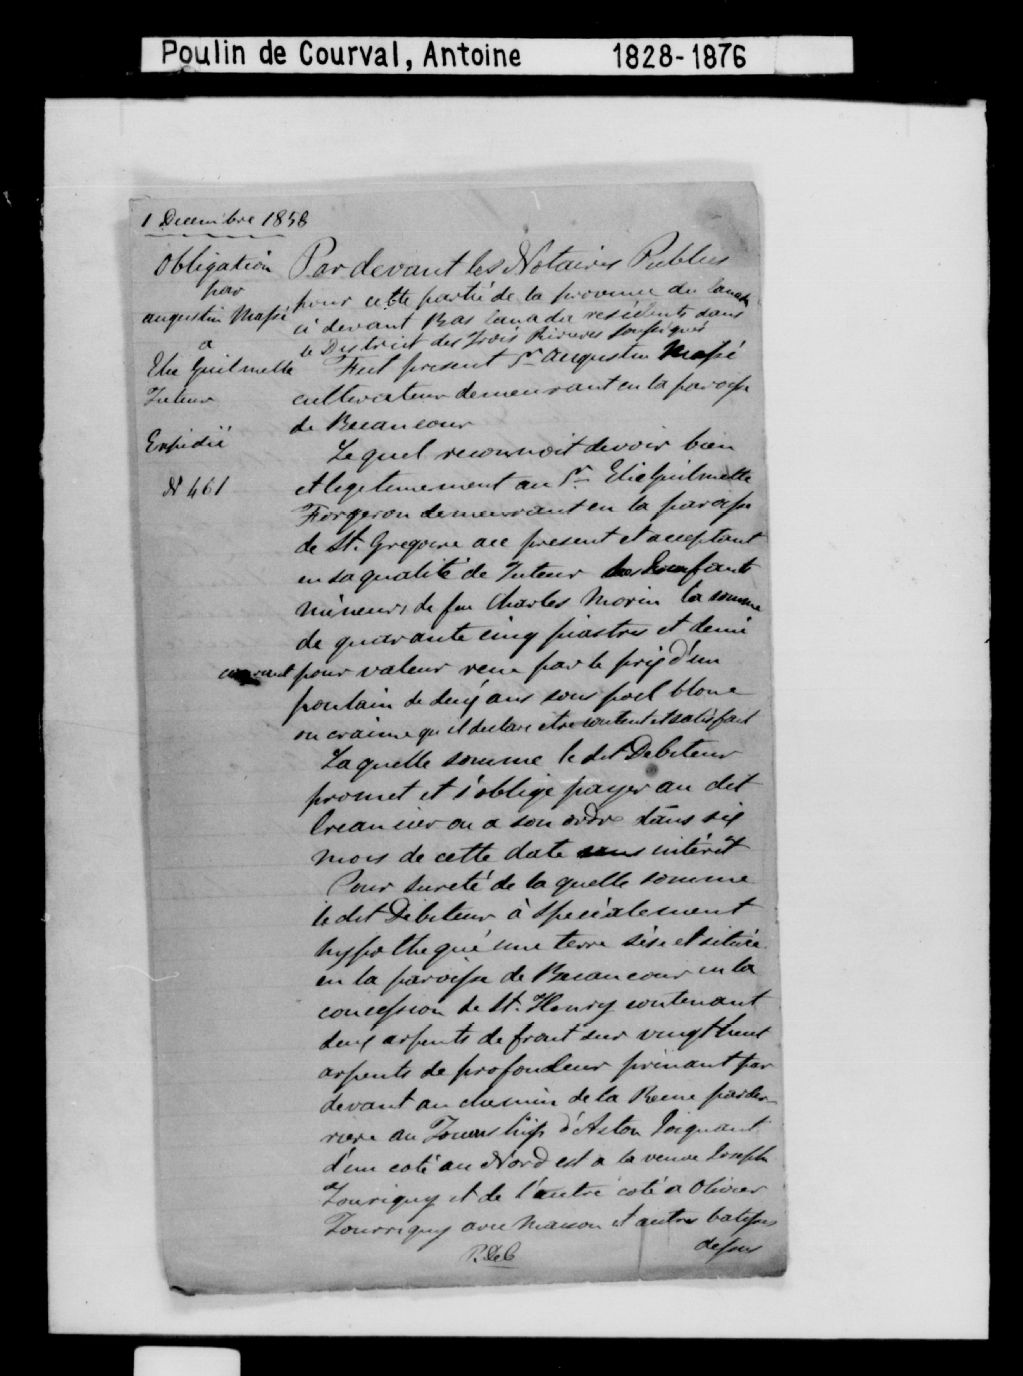 Poulin de Courval, Antoine 1828-1876
1 Decembre 1858
Obligation
par
augustin Massé
a
Elie Guilmette
Tuteur
Expédié
N 461
Par devant les Notaires Publics
pour cette partié de la province du Canada
ci devant Bas Canada residents dans
le District des Trois Rivieres soussignés
Fut present Sr. Augustin Massé
cultivateur demeurant en la paroisse
de Becancour
Lequel reconnoit devoir bien
et legitimement au Sr. Elie Guilmette
Forgeron demeurant en la paroisse
de St. Gregoire ace present et acceptant
en sa qualité de Tuteur enfants
mineurs de feu Charles Morin la somme
de quarante cinq piastres et demi
courant pour valeur recu par le prix d'un
poulain de deux ans sous poil
qu il declare etre content et satisfait
La quelle somme le dit Debiteur
promet et s'oblige payer au dit
Creancier ou a son ordre dans six
mois de cette date sans intérêt
Pour sureté de la quelle somme
le dit Débiteur à spécialement
hypothequé une terre sise et située
en la paroisse de Becancour en la
concession de St. Henry contenant
deux arpents de front sur vingt
arpents de profondeur prenant par
devant au chemin de la Reine par der-
riere au Township d'Aston Joignant
d'un coté au Nord est a la veuve Joseph
Tourigny et de l'autre coté a Olivier
Tourrigny avec Maison et autres batisses
dessus
P. DeC